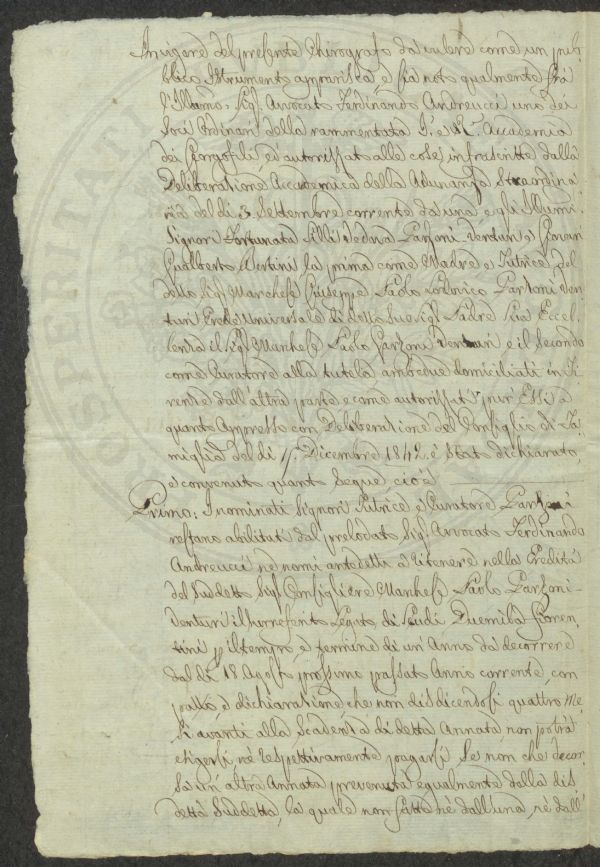 In vigore del presente Chirografo da valere come un pub-
blico Istrumento apparisca, e sia noto qualmente frà
l'Illmo: Sig.r Avvocato Ferdinando Andreucci uno dei
Socj Ordinarj della rammentata I. e R. Accademia
dei Georgofili, ed autorizzato alle cose infrascritte dalla
Deliberazione Accademica della Adunanza Straordina-
ria del dì 3. Settembre corrente da una e gli Illumi.
Signori Fortunata Silli Vedova Garzoni Venturi, e Giovan
Gualberto Bertini la prima come Madre e Tutrice del
detto Sig.r Marchese Giuseppe Paolo Lodovico Garzoni Ven-
turi Erede Universale di detto Suo Sig.r Padre Sua Eccel-
lenza il Sig.r Marchese Paolo Garzoni Venturi e il Secondo
come Curatore alla tutela ambedue domiciliati in Fi-
renze dall'altra parte e come autorizzati pur Essi a
quanto Appresso con Deliberazione del Consiglio di Fa-
miglia del dì Dicembre 1842. è Stato dichiarato,
e convenuto quanto Segue cioè
Primo: I nominati Signori Tutrice e Curatore Garzoni
restano abilitati dal prelodato Sig.r Avvocato Ferdinando
Andreucci ne nomi antedetti a ritenere nella Eredità
del Suddetto Sig.r Consigliere Marchese Paolo Garzoni-
Venturi il surreferito Legato di Scudi Duemila fioren-
tini p il tempo, e termine di un'Anno da decorrere
dal dì 18 Agosto prossimo passato Anno corrente, con
patto, e dichiarazione, che non disdicendosi quattro Me-
si avanti alla Scadenza di detta Annata non potrà
esigersi nè respettivamente pagarsi Se non che decor-
sa un'altra Annata prevenuta egualmente dalla dis-
detta Suddetta, la quale non fatta nè dall'una, nè dall'